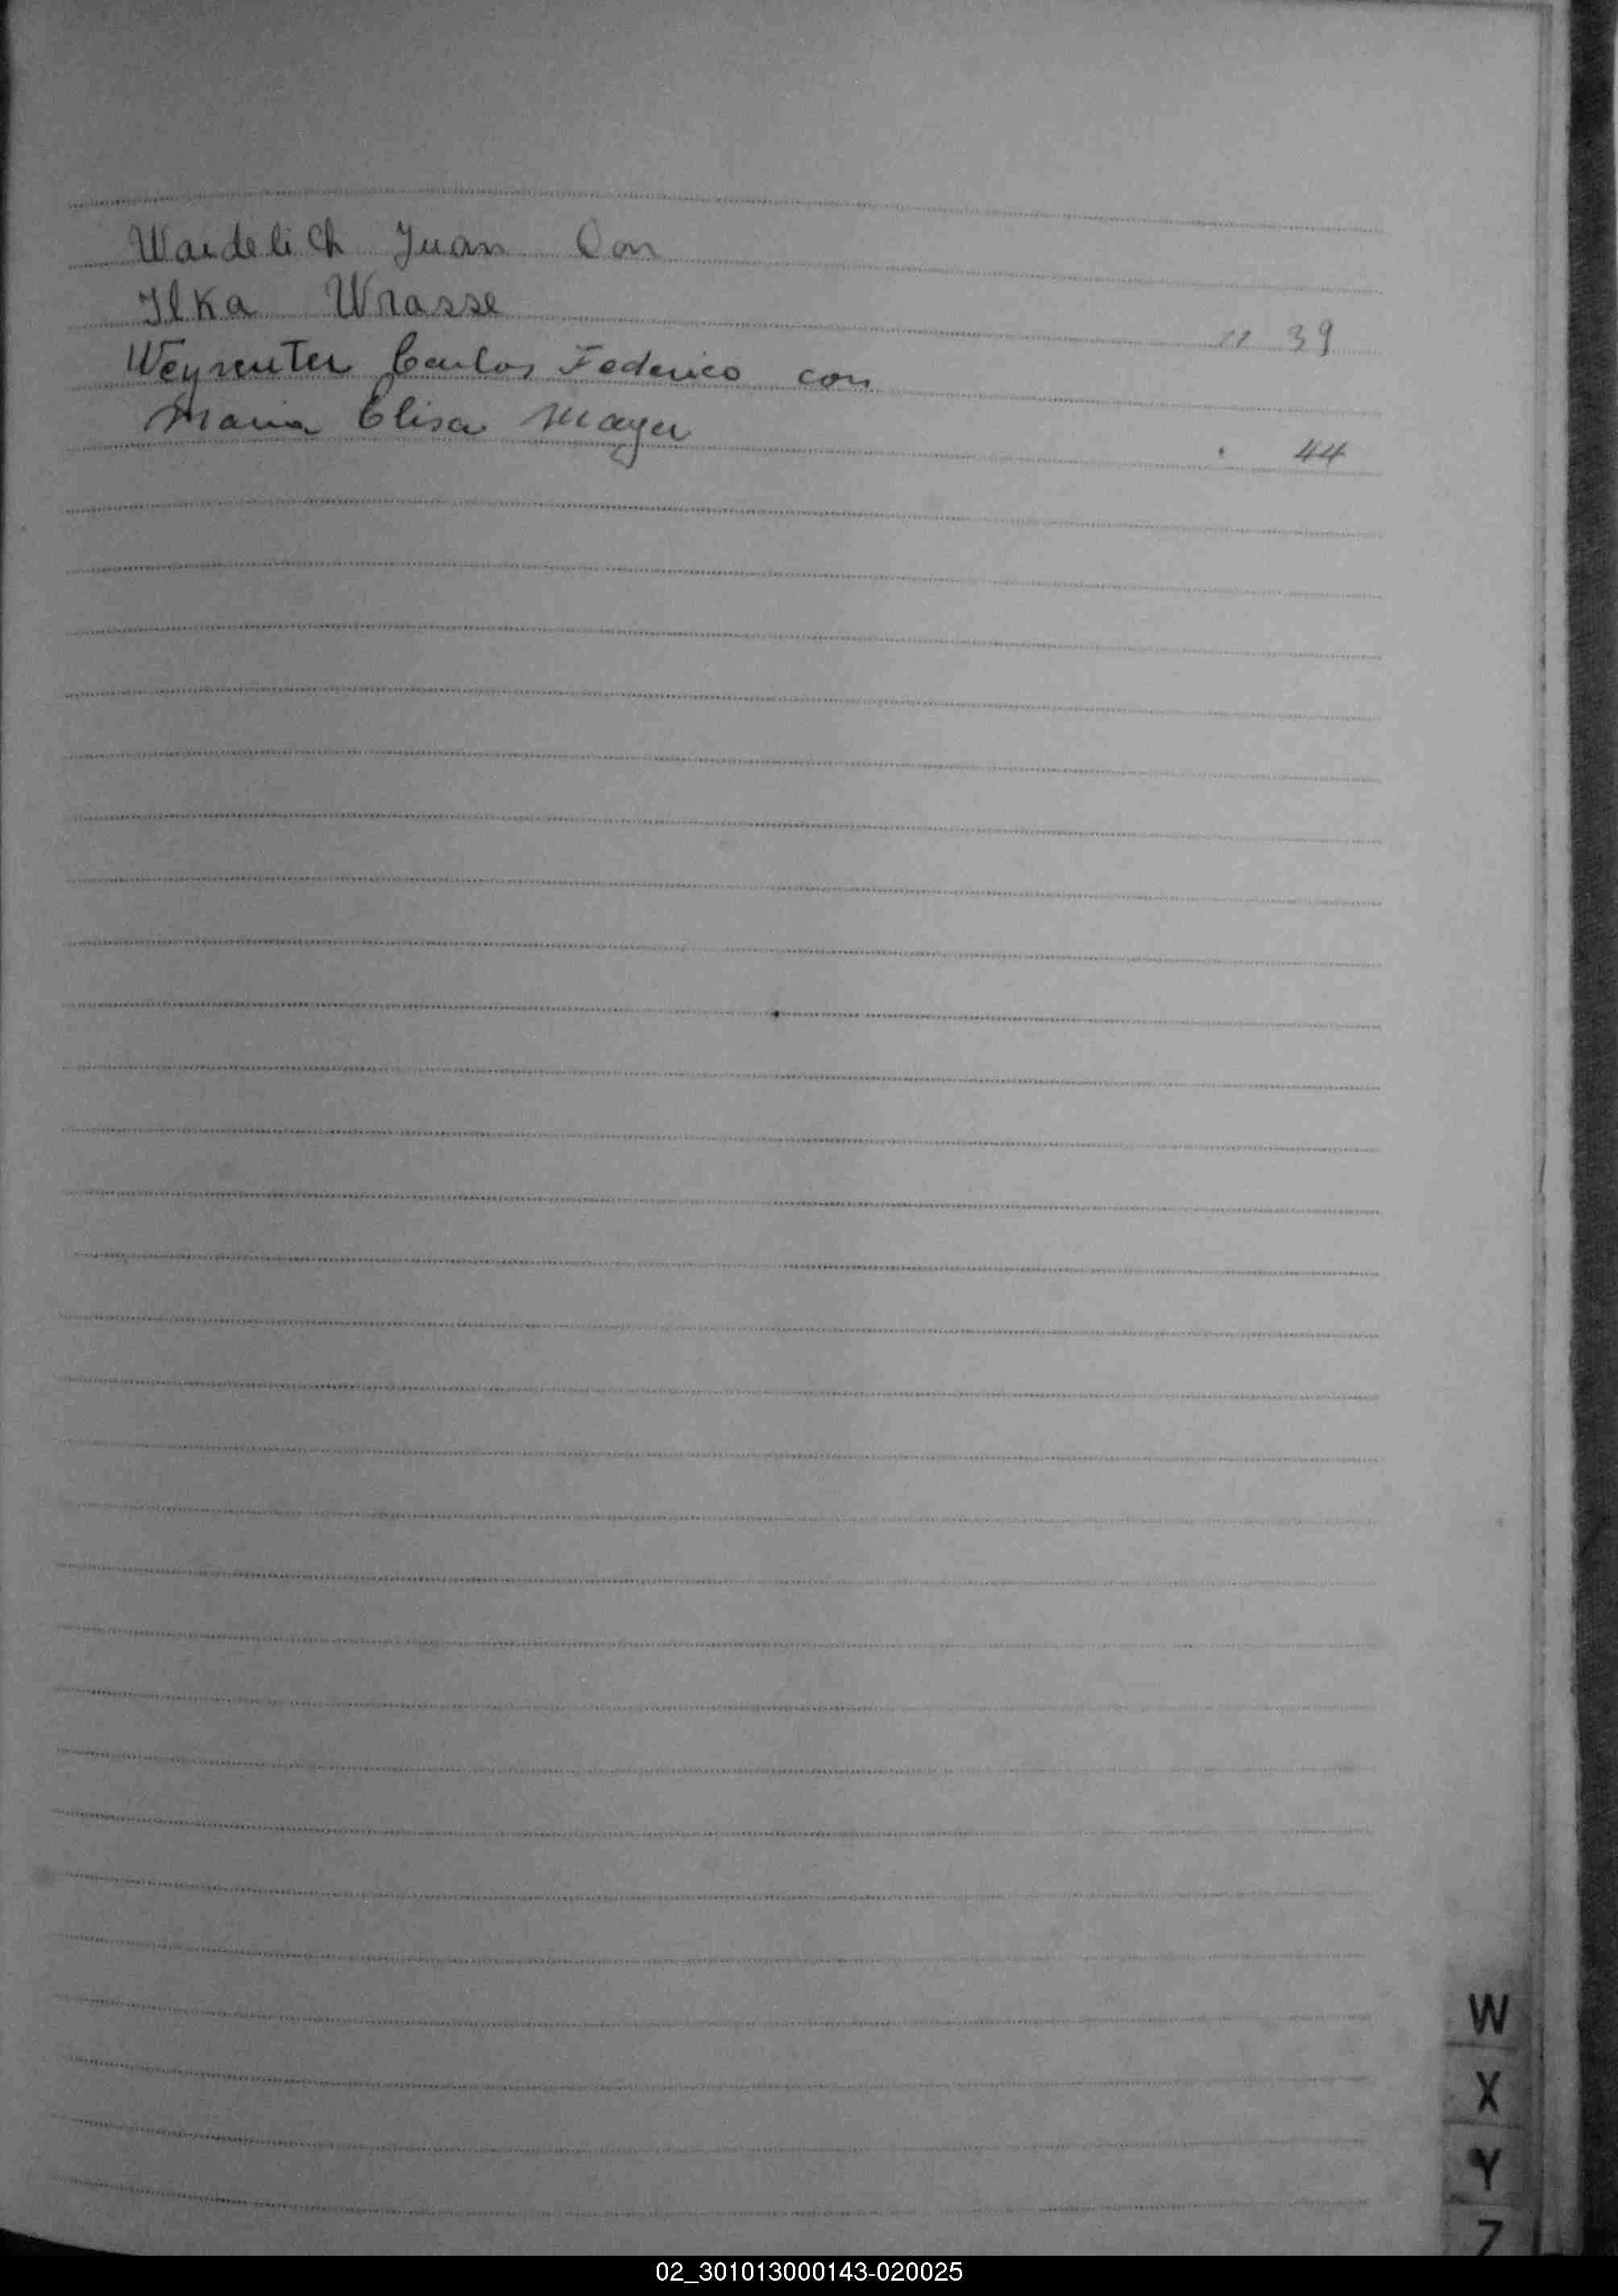 Waidelich Juan Con
Ilka Wrasse 11 39
Weyreuter Carlos Federico con
Maria Elisa Mayer 44
W
X
Y
Z
02_301013000143-020025